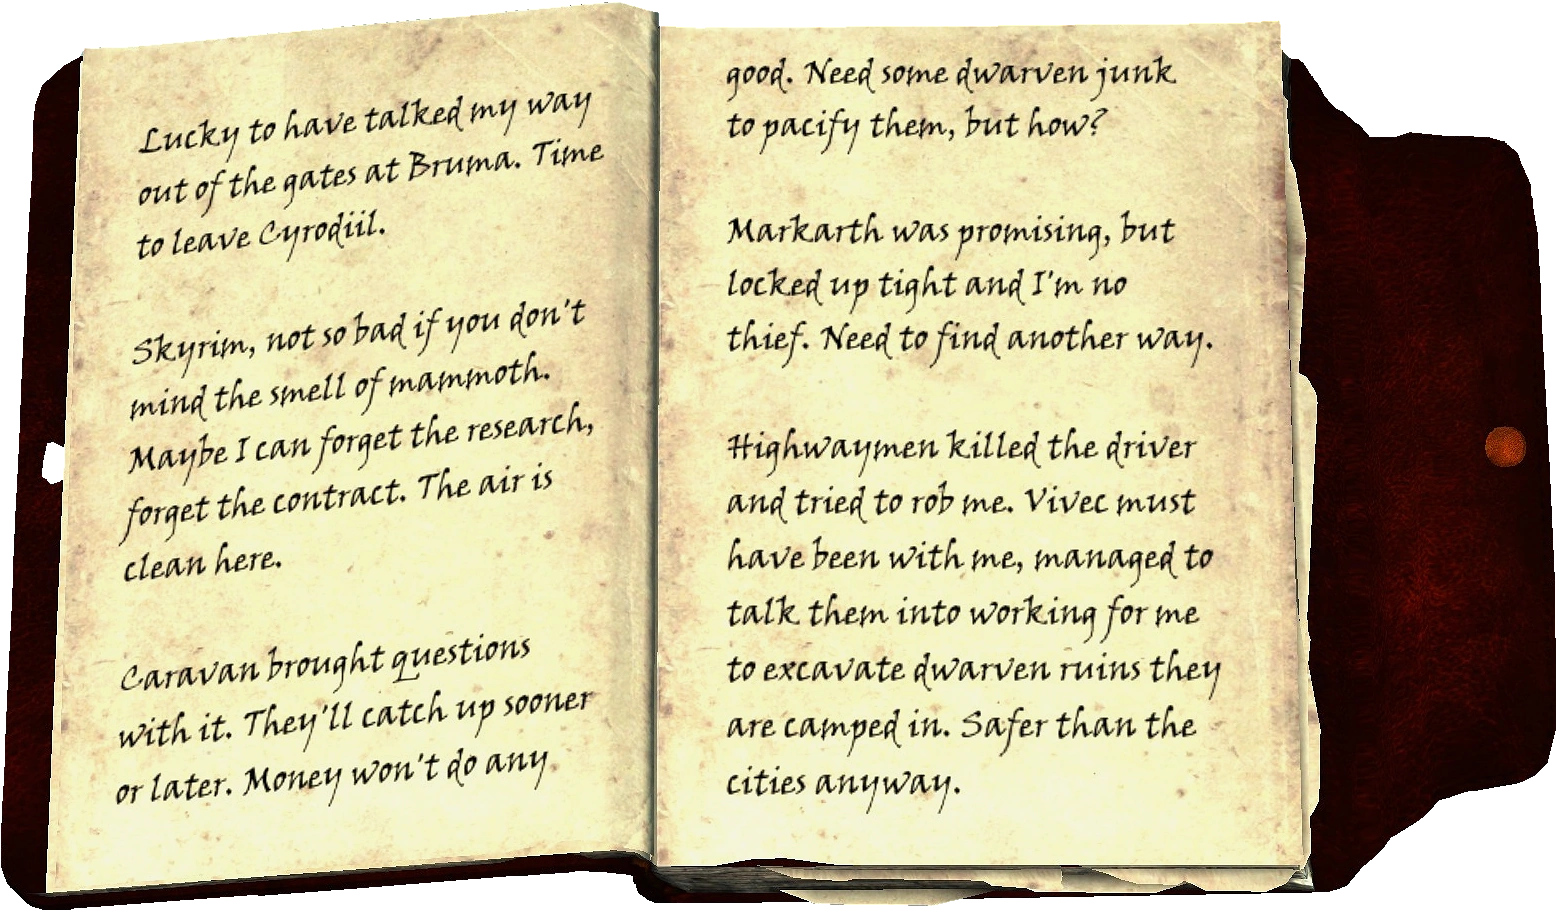 Lucky to have talked my way
out of the gates at Bruma. Time
to leave Cyrodiil.
Skyrim, not so bad if you don't
mind the smell of mammoth.
Maybe I can forget the research,
forget the contract. The air is
clean here.
Caravan brought questions
with it. They'll catch up sooner
or later. Money won't do any
good. Need some dwarven junk
to pacify them, but how?
Markarth was promising, but
locked up tight and I'm no
thief. Need to find another way.
Highwaymen killed the driver
and tried to rob me. Vivec must
have been with me, managed to
talk them into working for me
to excavate dwarven ruins they
are camped in. Safer than the
cities anyway.